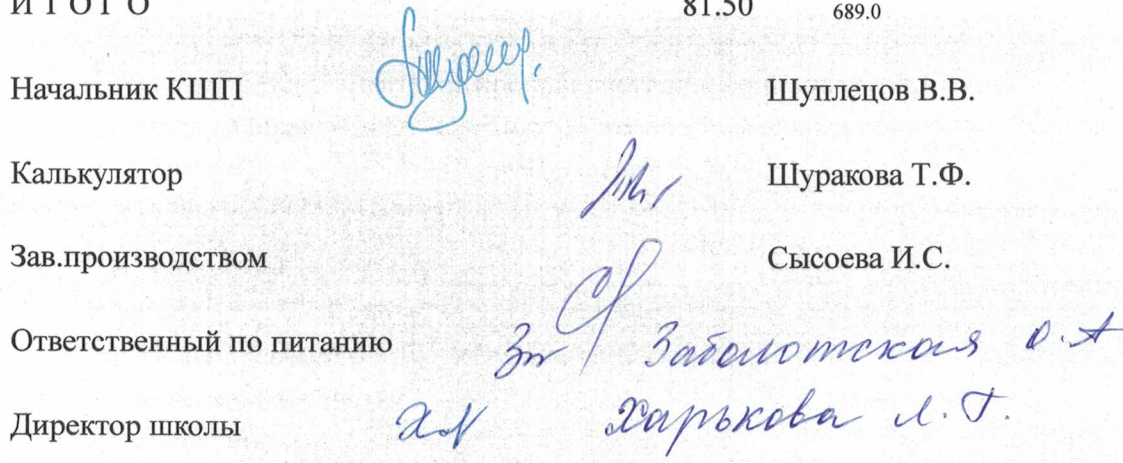 И Т О Г О 81.50 689.0
Начальник КШП Шуплецов В.В.
Калькулятор Шуракова Т.Ф.
Зав.производством Сысоева И.С.
Ответственный по питанию Заболотская О.А
Директор школы Харькова Л.Г.